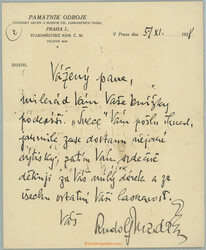 PAMÁTNÍK ODBOJE
PRAHA I.,
STAROMĚSTSKÉ NÁM. Č.
2
V Praze dne 5/XI.
Vážený pane,
milerád Vám Vaše knížky
podepíši. "Švec" Vám pošlu ihned,
jakmile zase dostanu nějaké
výtisky, zatím Vám srdečně
děkuji za Váš milý dárek a za
všechnu ostatní Vaši laskavost.
Váš
Rudolf Medek